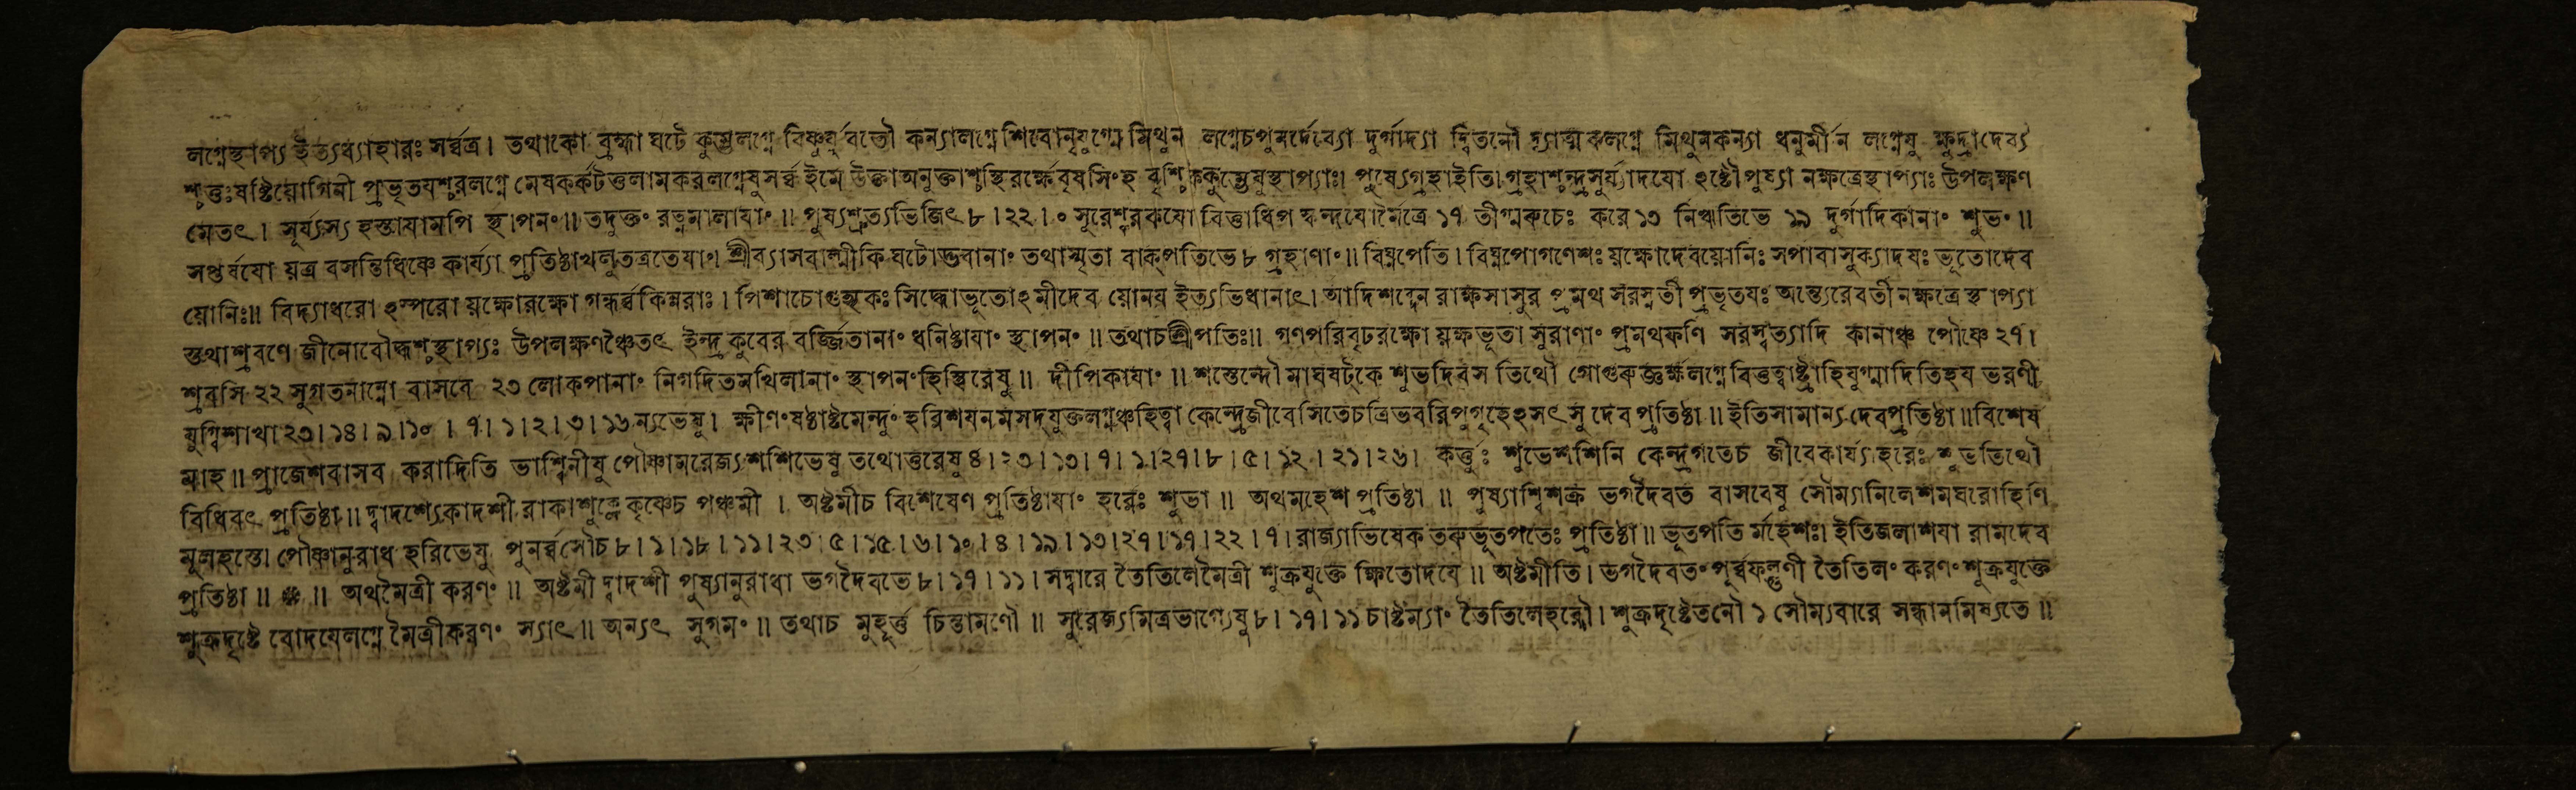 লগ্নেস্থাপ্য ইত্যব্যাহারঃ সর্ব্বত্র। তথাকো ব্রহ্মা ঘটে কুম্ভলগ্নে বিষ্ণুর্যুবতৌ কন্যালগ্নে শিবোনৃযুগ্মে মিথুন লগ্নেচপুনর্দেব্যো দুর্গাদ্যা দ্বিতনৌ দ্ব্যাত্মকলগ্নে মিথুনকন্যা ধনুর্মীন লগ্নেষু ক্ষুদ্রাদেব্য
শ্চতুঃষষ্টিযোগিনী প্রভৃতযশ্চরলগ্নে মেষকর্কটতুলামকরলগ্নেষুসর্ব্ব ইমে উক্তাঅনুক্তাশ্চস্থিরর্ক্ষে বৃষসিংহ বৃশ্চিককুম্ভেষুস্থাপ্যাঃ। পুষ্যেগ্রহাইতি। গ্রহাশ্চন্দ্রসূর্য্যাদযো ঽষ্টৌপুষ্যা নক্ষত্রেস্থাপ্যাঃ উপলক্ষণ
মেতৎ। সূর্য্যস্য হস্তাযামপি স্থাপনং॥ তদুক্তং রত্নমালাযাং॥ পুষ্যশ্রুত্যভিজিৎ ৮।২২।০ সুরেশ্বরকযো বিত্তাধিপ স্কন্দযোর্মৈত্রে ১৭ তীগ্মরুচেঃ করে ১৩ নিঋতিভে ১৯ দুর্গাদিকানাং শুভং॥
সপ্তর্ষযো যত্র বসন্তিধিষ্ণে কার্য্যা প্রতিষ্ঠাখলুতত্রতেষাং। শ্রীব্যাসবাল্মীকি ঘটোদ্ভবানাং তথাস্মৃতা বাক্পতিভে ৮ গ্রহাণাং॥ বিঘ্নপেতি। বিঘ্নপোগণেশঃ যক্ষোদেবযোনিঃ সর্পাবাসুক্যাদযঃ ভূতোদেব
যোনিঃ॥ বিদ্যাধরো ঽপ্সরো যক্ষোরক্ষো গন্ধর্ব্বকিন্নরাঃ। পিশাচোগুহ্যকঃ সিদ্ধোভূতোঽমীদেব যোনয ইত্যভিধানাৎ। আদিশব্দেন রাক্ষসাসুর প্রমথ সরস্বতী প্রভৃতযঃ অন্ত্যেরেবতীনক্ষত্রে স্থাপ্যা
স্তথাশ্রবণে জীনোবৌদ্ধশ্চস্থাপ্যঃ উপলক্ষণঞ্চৈতৎ ইন্দ্র কুবের বর্জ্জিতানাং ধনিষ্ঠাযাং স্থাপনং॥ তথাচশ্রীপতিঃ॥ গণপরিবৃঢরক্ষো যক্ষভূতা সুরাণাং প্রমথফণি সরস্বত্যাদি কানাঞ্চ পৌষ্ণে ২৭।
শ্রবসি ২২ সুগতনাম্নো বাসবে ২৩ লোকপানাং নিগদিতমখিলানাং স্থাপনংহিস্থিরেষু॥ দীপিকাযাং॥ শস্তেন্দৌ মাঘষট্কে শুভদিবস তিথৌ বিত্তত্বাষ্ট্রাহিযুগ্মাদিতিহয ভরণী
যুগ্বিশাখা ২৩।১৪।৯।১০।৭।১।২।৩।১৬ন্যভেষু। ক্ষীণংষষ্ঠাষ্টমেন্দুং হরিশযনমসদ্ যুক্তলগ্নঞ্চহিত্বা কেন্দ্রেজীবেসিতেচত্রিভবরিপুগৃহেঽসৎ সু দেব প্রতিষ্ঠা॥ ইতিসামান্য দেবপ্রতিষ্ঠা॥ বিশেষ
মাহ॥ প্রাজেশবাসব করাদিতি ভাশ্বিনীষু পৌষ্ণামরেজ্যশশিভেষু তথোত্তরেষু ৪।২৩।১৩।৭।১।২৭।৮।৫।১২।২১।২৬। কর্ত্তুঃ শুভেশশিনি কেন্দ্রগতেচ জীবেকার্য্যাহরেঃ শুভতিথৌ
বিধিবৎ প্রতিষ্ঠা॥ দ্বাদশ্যেকাদশী রাকাশুক্লেকৃষ্ণেচ পঞ্চমী। অষ্টমীচ বিশেষেণ প্রতিষ্ঠাযাং হরেঃ শুভা॥ অথমহেশ প্রতিষ্ঠা॥ পুষ্যাশ্বিশক্র ভগদৈবত বাসবেষু সৌম্যানিলেশমঘরোহিণি
মূলহস্তে। পৌষ্ণানুরাধ হরিভেষু পুনর্ব্বসৌচ ৮।১।১৮।১১।২৩।৫।১৫।৬।১০।৪।১৯।১৩।২৭।১৭।২২।৭। রাজ্যাভিষেক তরুভূতপতেঃ প্রতিষ্ঠা॥ ভূতপতি র্মহেশঃ। ইতিজলাশযা রামদেব
প্রতিষ্ঠা॥ ❈॥ অথমৈত্রী করণং॥ অষ্টমী দ্বাদশী পুষ্যানুরাধা ভগদৈবভে ৮।১৭।১১। সদ্বারে তৈতিলেমৈত্রী শুক্রযুক্তে ক্ষিতোদযে॥ অষ্টমীতি। ভগদৈবতং পূর্ব্বফল্গুণী তৈতিলং করণং শুক্রযুক্তে
শুক্রদৃষ্টে বোদযেলগ্নে মৈত্রীকরণং স্যাৎ॥ অন্যৎ সুগমং॥ তথাচ মুহূর্ত্ত চিন্তামণৌ॥ সুরেজ্যমিত্রভাগ্যেষু ৮।১৭।১১ চাষ্টম্যাং তৈতিলেহরৌ। শুক্রদৃষ্টেতনৌ ১ সৌম্যবারে সন্ধানমিষ্যতে॥